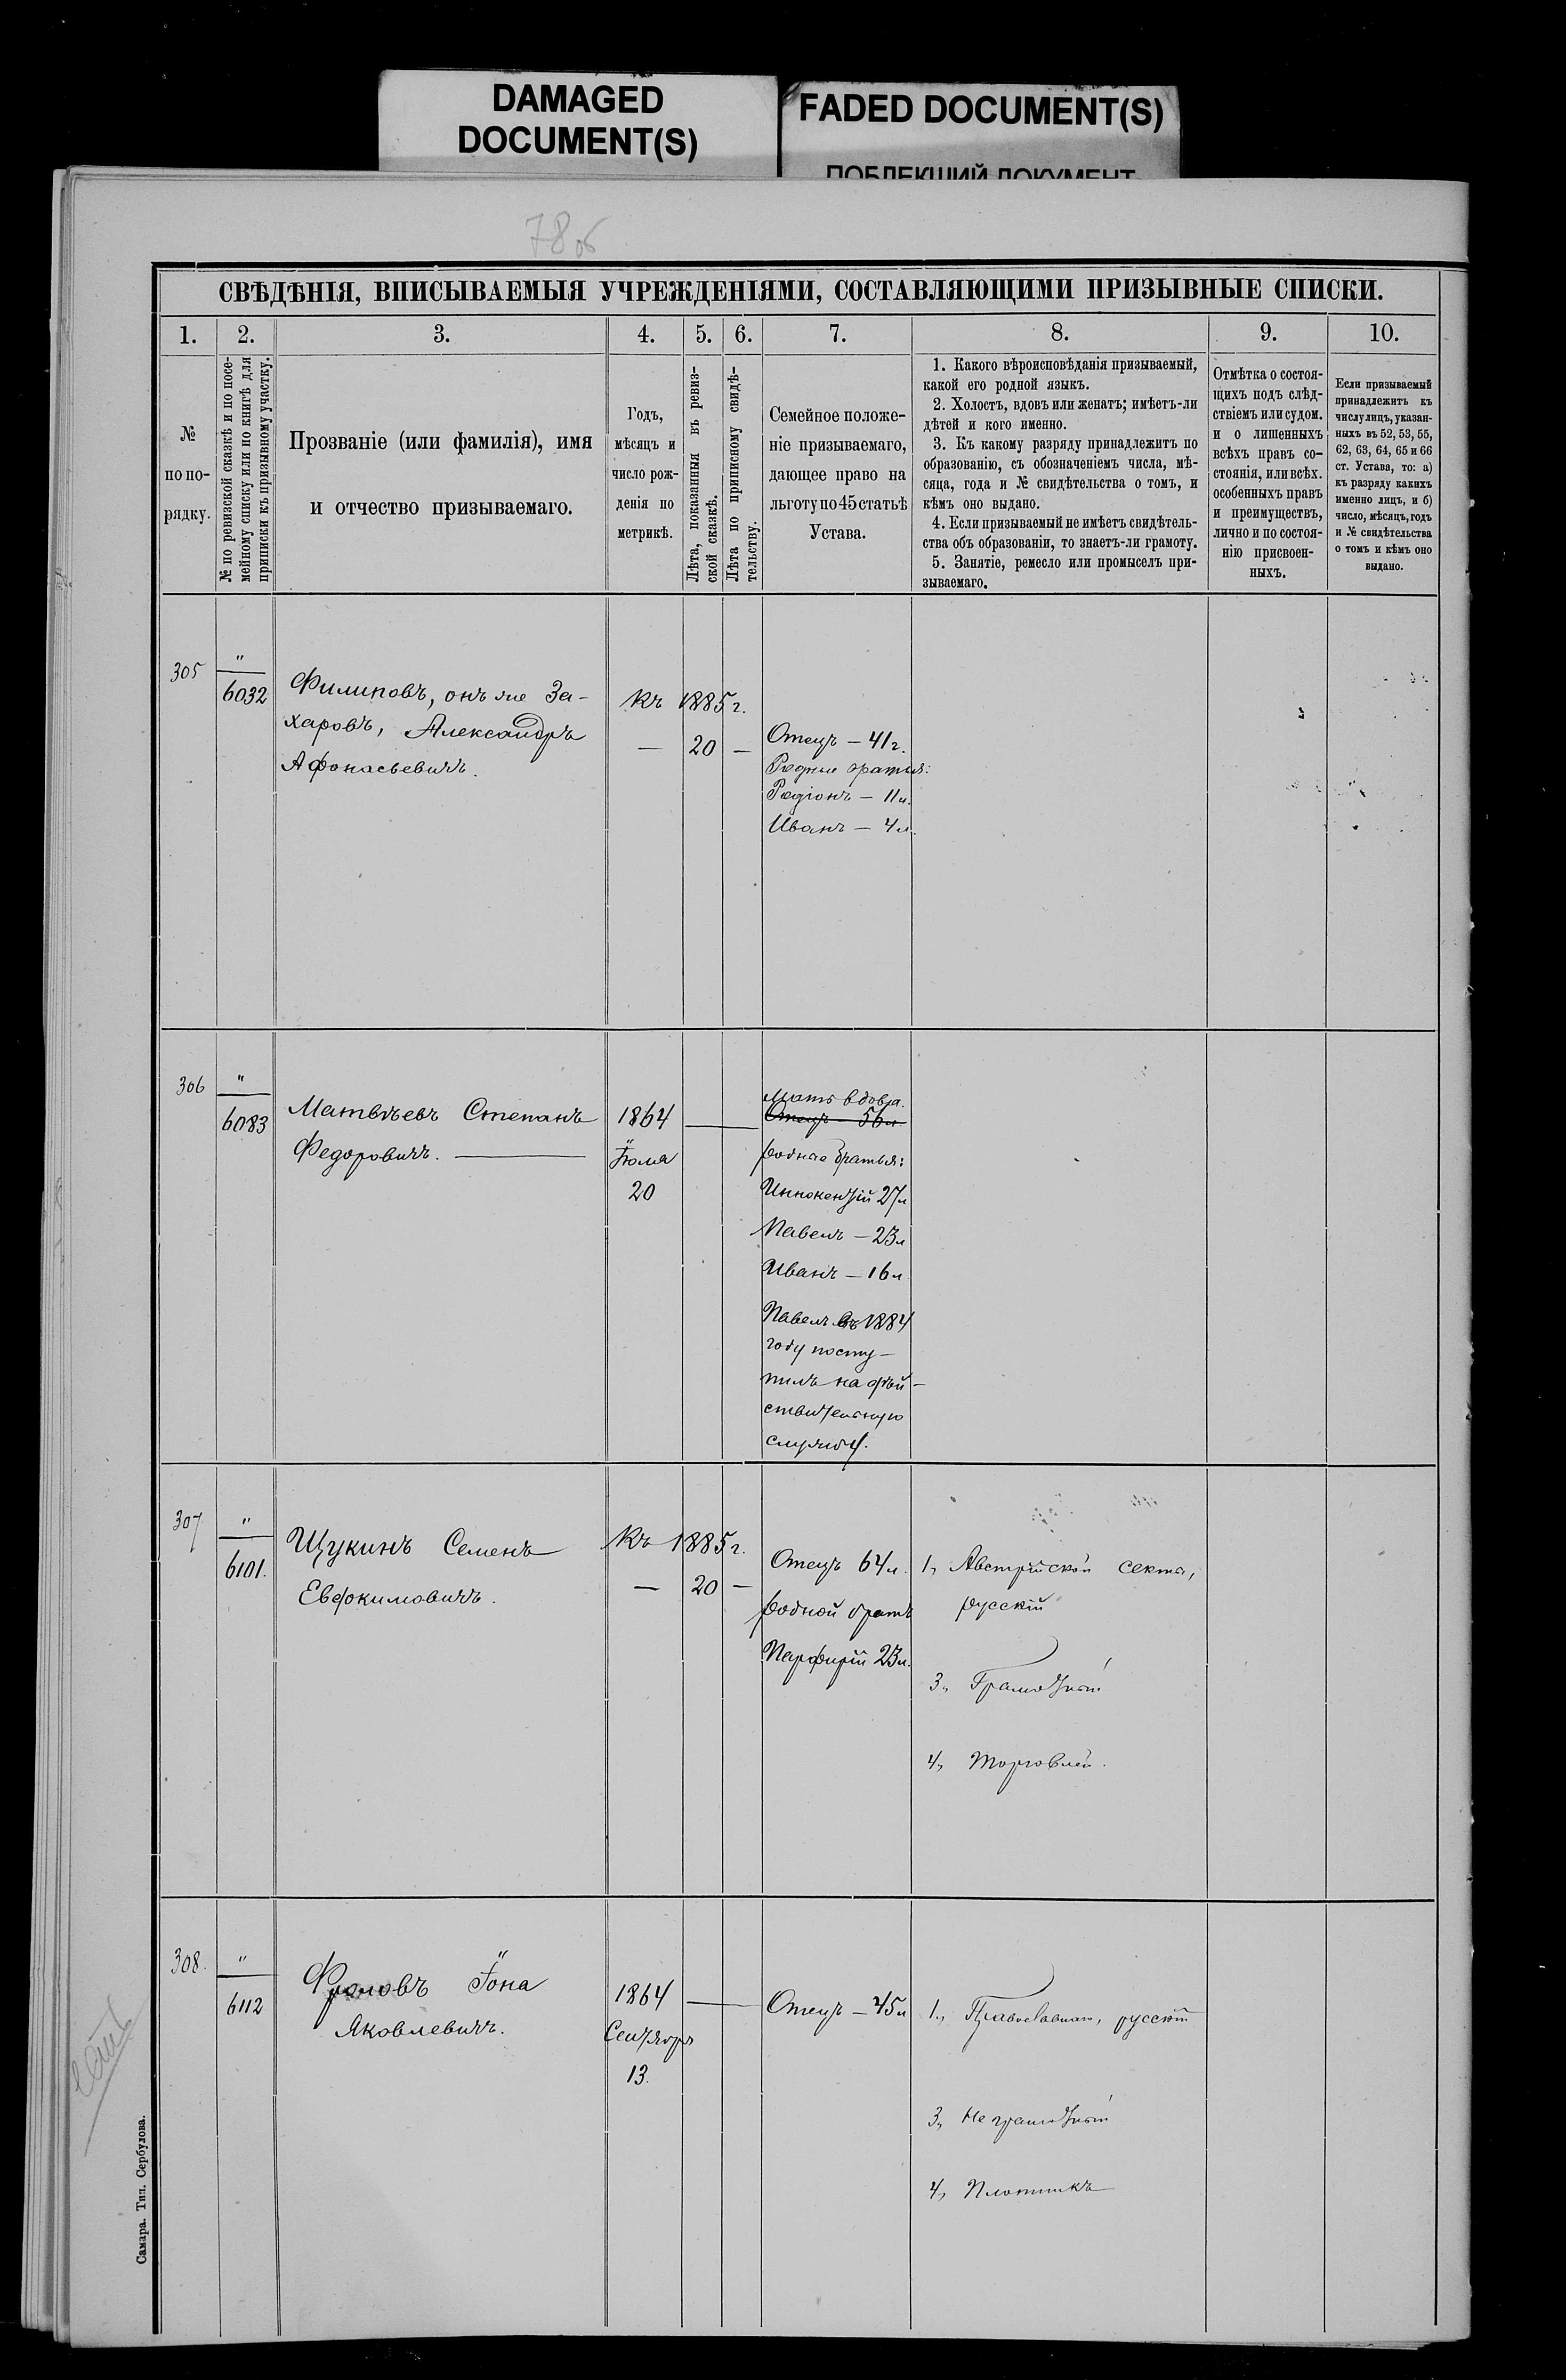 DAMAGED
DOCUMENT(S)
FADED DOCUMENT(S)
ПОБЛЕКШИЙ ДОКУМЕНТ
78 об
СВѢДѢНІЯ, ВПИСЫВАЕМЫЯ УЧРЕЖДЕНІЯМИ, СОСТАВЛЯЮЩИМИ ПРИЗЫВНЫЕ СПИСКИ.
1.
2.
3.
4.
5.
6.
7.
8.
9.
10.
№
по по-
рядку.
№ по ревизской сказкѣ и по посе-
мейному списку или по книгѣ для
приписки къ призывному участку.
Прозваніе (или фамилія), имя
и отчество призываемаго.
Годъ,
мѣсяцъ и
число рож-
денія по
метрикѣ.
Лѣта, показанныя въ ревиз-
ской сказкѣ.
Лѣта по приписному свидѣ-
тельству.
Семейное положе-
ніе призываемаго,
дающее право на
льготу по 45 статьѣ
Устава.
1. Какого вѣроисповѣданія призываемый,
какой его родной языкъ.
2. Холостъ, вдовъ или женатъ; имѣетъ-ли
дѣтей и кого именно.
3. Къ какому разряду принадлежитъ по
образованію, съ обозначеніемъ числа, мѣ-
сяца, года и № свидѣтельства о томъ, и
кѣмъ оно выдано.
4. Если призываемый не имѣетъ свидѣтель-
ства объ образованіи, то знаетъ-ли грамоту.
5. Занятіе, ремесло или промыселъ при-
зываемаго.
Отмѣтка о состоя-
щихъ подъ слѣд-
ствіемъ или судом.
и о лишенныхъ
всѣхъ правъ со-
стоянія, или всѣх.
особенныхъ правъ
и преимуществъ,
лично и по состоя-
нію присвоен-
ныхъ.
Если призываемый
принадлежитъ къ
числу лицъ, указан-
ныхъ въ 52, 53, 55,
62, 63, 64, 65 и 66
ст. Устава, то: а)
къ разряду какихъ
именно лицъ, и б)
число, мѣсяцъ, годъ
и № свидѣтельства
о томъ и кѣмъ оно
выдано.
305
"
6032
Филиповъ, онъ же За-
харовъ, Александръ
Афонасьевичъ.
Къ 1885 г.
— 20 —
Отецъ — 41 г.
Родные братья:
Родіонъ — 11 л.
Иванъ — 4 л.
306
"
6083
Матвѣевъ Степанъ
Федоровичъ. —
1864
Іюля
20
Мать вдова.
Отецъ — 56 л.
родные братья:
Иннокентій 27 л
Павелъ — 23 л
Иванъ — 16 л
Павелъ въ 1884
году посту-
пилъ на дѣй-
ствительную
службу.
307
"
6101.
Щукинъ Семенъ
Евдокимовичъ.
Къ 1885 г.
— 20 —
Отецъ 64 л.
родной братъ
Парфирій 23 л.
1, Австрійской секты,
русскій
3, Грамотный
4, Торговлей.
308.
"
6112
Фроловъ Іона
Яковлевичъ.
1864
Сентября
13.
Отецъ — 45 л
1., Православнаго, русскій
3, Неграмотный
4, Плотникъ
Самара. Тип. Сербулова.